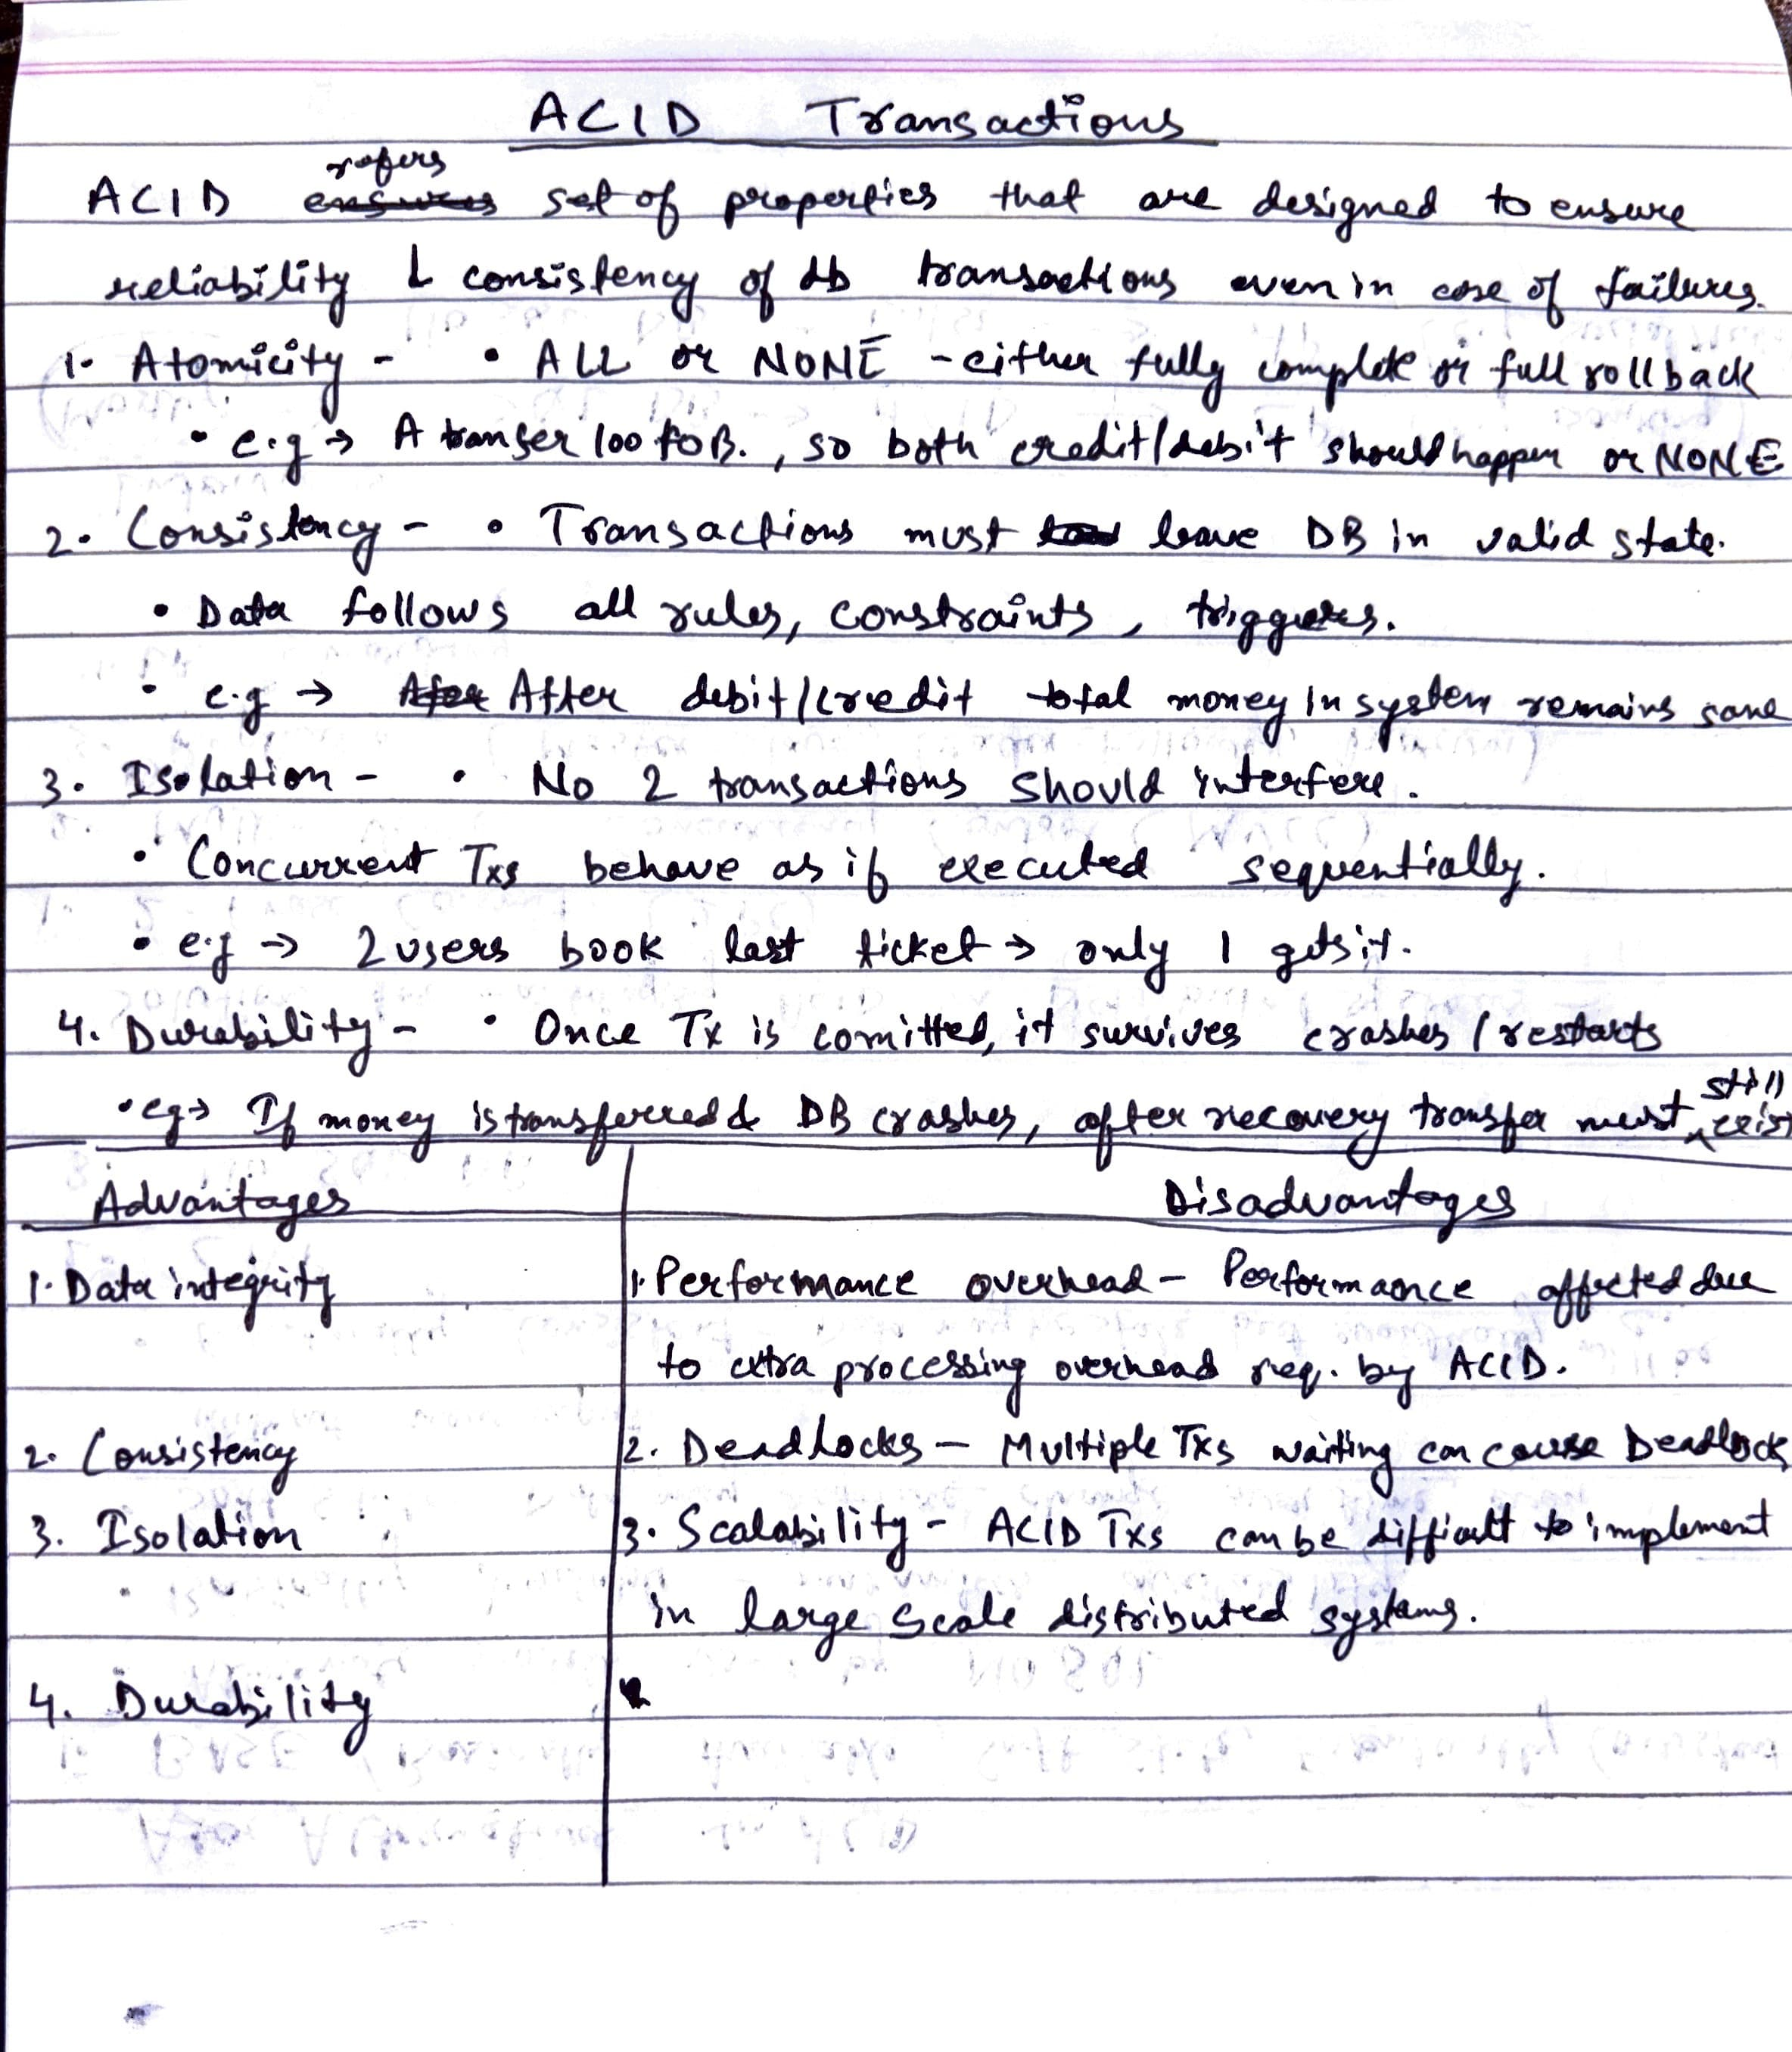 ACID Transactions
refers
ACID ensures set of properties that are designed to ensure
reliability & consistency of db transactions even in case of failures.
1. Atomicity - • ALL or NONE - either fully complete or full rollback
• e.g → A tranfer 100 to B. , so both credit/debit should happen or NONE
2. Consistency - • Transactions must leave DB in valid state.
• Data follows all rules, constraints, triggers.
• e.g → After After debit/credit total money in system remains same
3. Isolation - • No 2 transactions should interfere.
• Concurrent Txs behave as if executed sequentially.
• e.g → 2 users book last ticket → only 1 gets it.
4. Durability - • Once Tx is comitted, it survives crashes / restarts
still
• eg → If money is transferred & DB crashes, after recovery transfer must exist
Advantages Disadvantages
1. Data integrity 1. Performance overhead - Performance affected due
to extra processing overhead req. by ACID.
2. Consistency 2. Deadlocks - Multiple Txs waiting can cause Deadlock
3. Isolation 3. Scalability - ACID Txs can be difficult to implement
in large scale distributed systems.
4. Durability